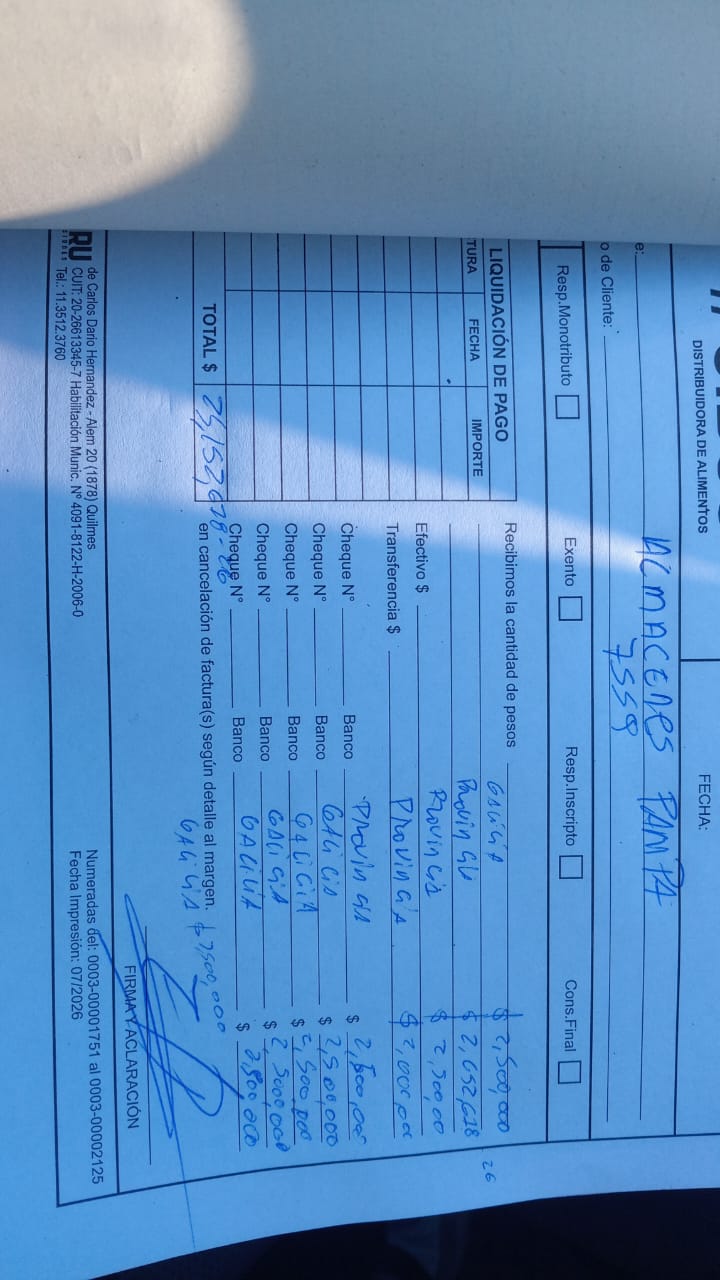 DISTRIBUIDORA DE ALIMENTOS
FECHA:
e: ALMACENES PAMPA
o de Cliente: 7559
Resp.Monotributo
Exento
Resp.Inscripto
Cons.Final
LIQUIDACIÓN DE PAGO
TURA FECHA IMPORTE
Recibimos la cantidad de pesos GALICIA $ 2,500,000
Provincia $ 2,652,678 26
Provincia $ 2,500,00
Efectivo $
Transferencia $ Provincia $ 2,000,00
Cheque N° Banco Provincia $ 2,500,000
Cheque N° Banco GALICIA $ 2,500,000
Cheque N° Banco GALICIA $ 2,500,000
Cheque N° Banco GALICIA $ 2,5000000
Cheque N° Banco GALICIA $ 2,500,000
TOTAL $ 25,152,678-26
en cancelación de factura(s) según detalle al margen.
GALICIA $ 2,500,000
FIRMA Y ACLARACIÓN
RU
de Carlos Dario Hernandez - Alem 20 (1878) Quilmes
CUIT: 20-26613345-7 Habilitación Munic. N° 4091-8122-H-2006-0
Tel.: 11.3512.3760
Numeradas del: 0003-00001751 al 0003-00002125
Fecha Impresión: 07/2026